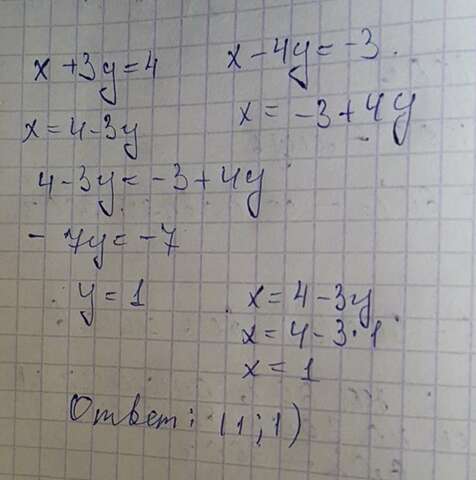 x + 3y = 4
x - 4y = -3.
x = 4 - 3y
x = -3 + 4y
4 - 3y = -3 + 4y
- 7y = -7
y = 1
x = 4 - 3y
x = 4 - 3 · 1
x = 1
Ответ: (1; 1)